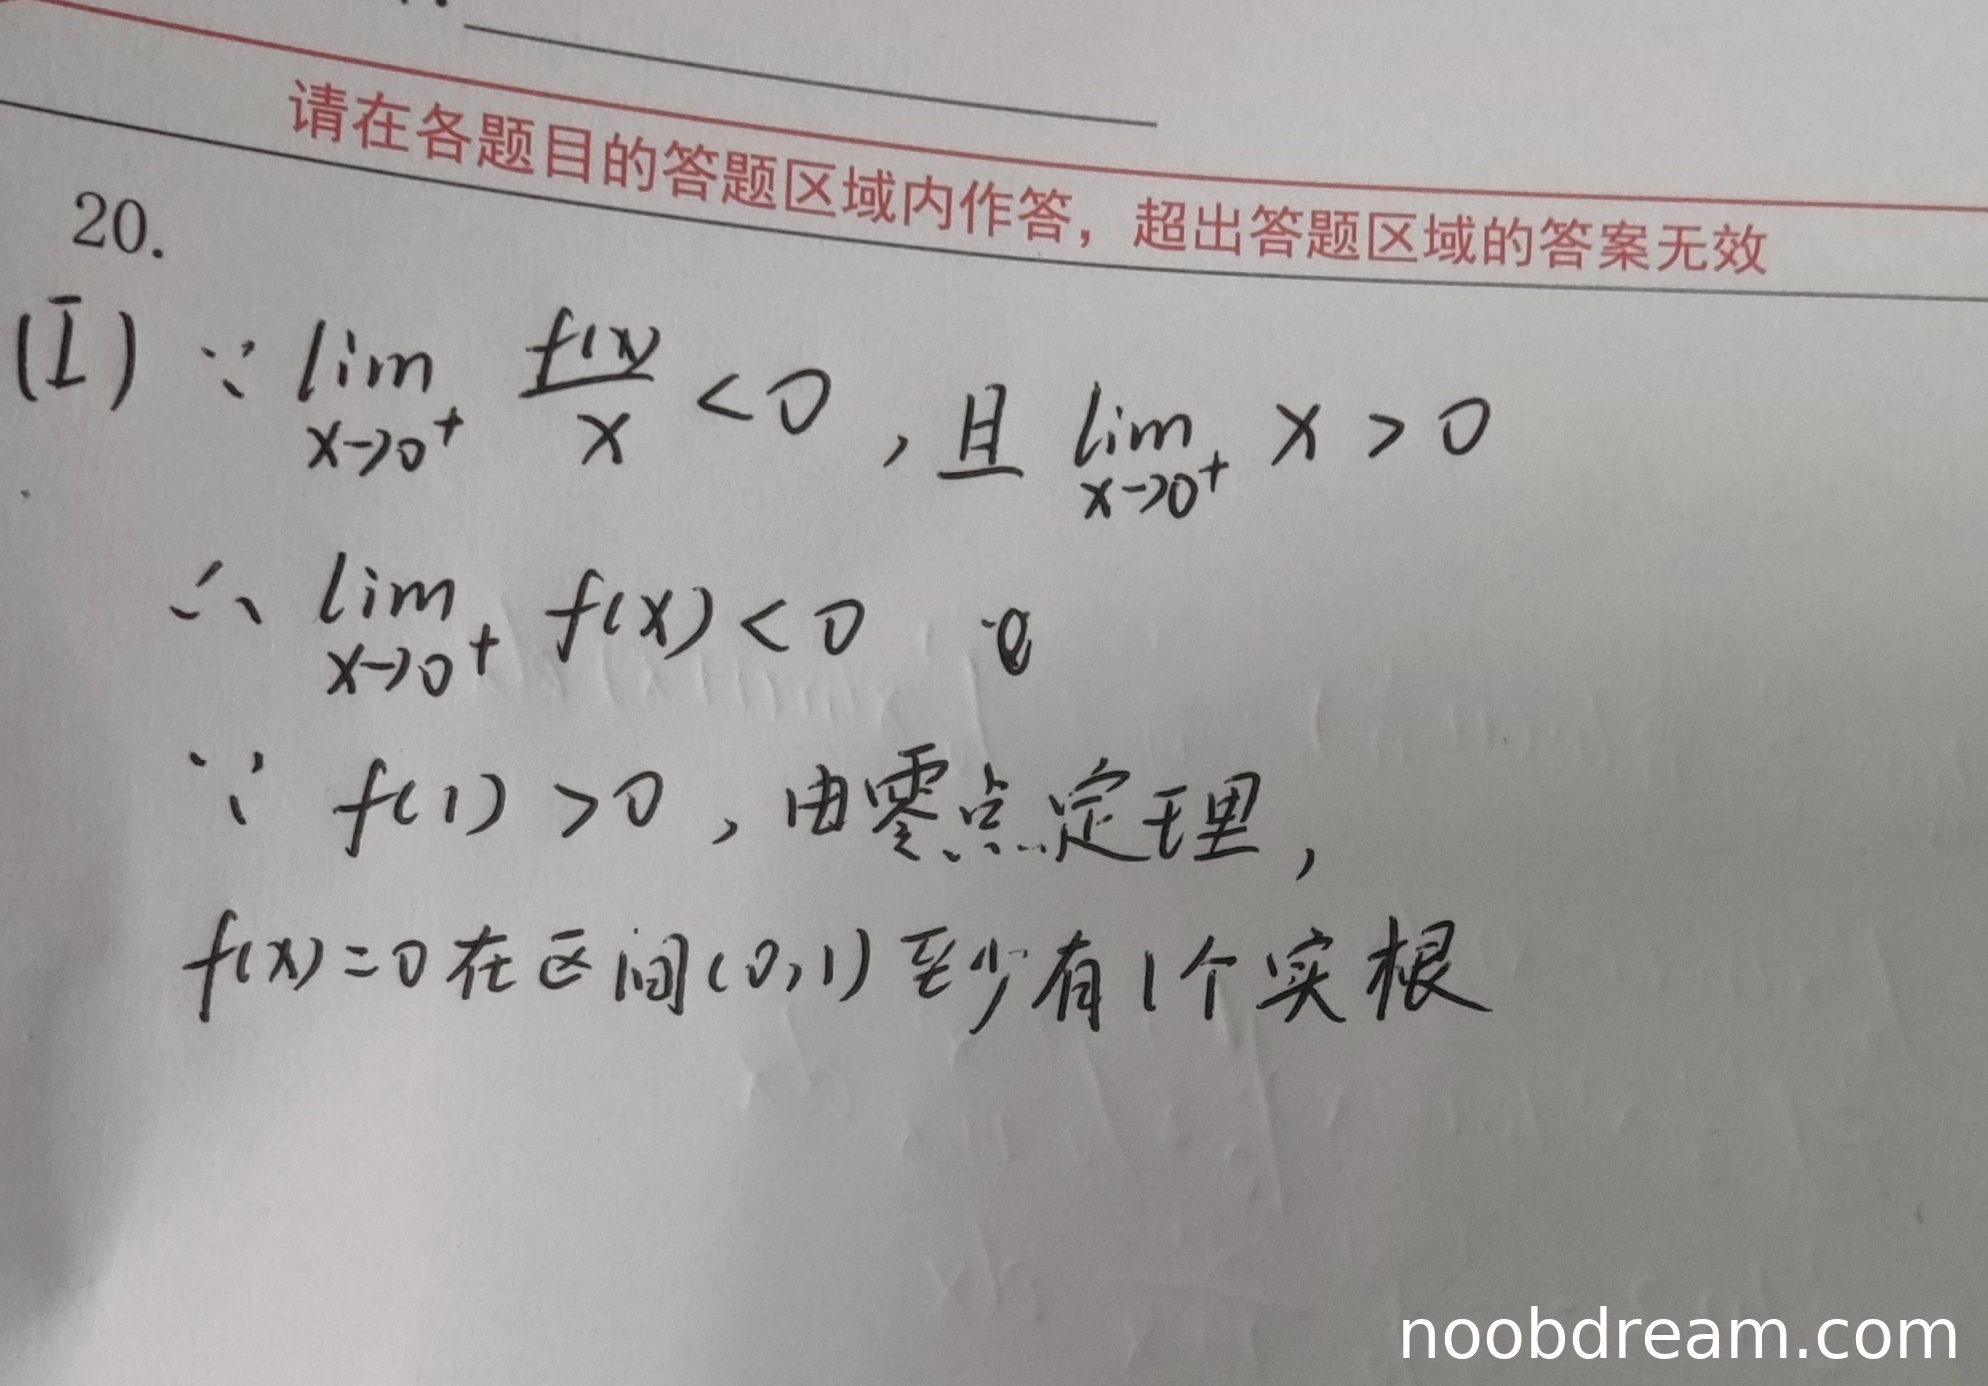 请在各题目的答题区域内作答，超出答题区域的答案无效
20.
(I) ∵ lim x→0⁺ f(x)/x < 0 , 且 lim x→0⁺ x > 0
∴ lim x→0⁺ f(x) < 0
∵ f(1) > 0 , 由零点定理 ,
f(x) = 0 在区间 (0,1) 至少有1个实根
noobdream.com